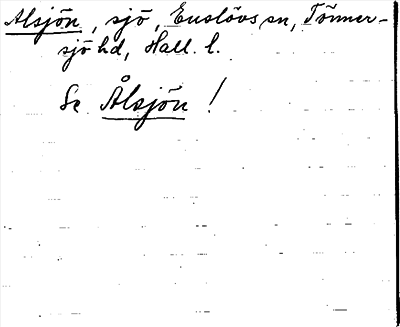 Alsjön, sjö, Enslövs sn, Tönner-
sjö hd, Hall. l.
Se Ålsjön!